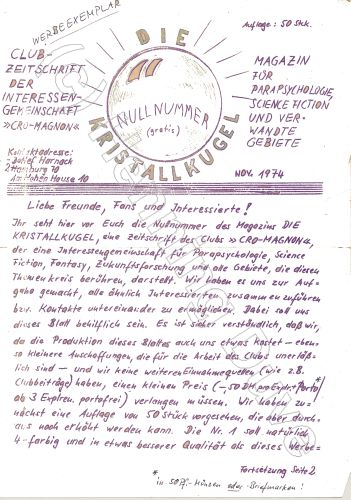 WERBEEXEMPLAR
Auflage: 50 Stk.
DIE
KRISTALLKUGEL
NULLNUMMER
(gratis)
CLUB-
ZEITSCHRIFT
DER
INTERESSEN-
GEMEINSCHAFT
»CRO-MAGNON«
MAGAZIN
FÜR
PARAPSYCHOLOGIE,
SCIENCE FICTION
UND VER-
WANDTE
GEBIETE
Kontaktadresse:
Detlef Harnack
2 Hamburg 70
Am Hohen Hause 10
NOV. 1974
Liebe Freunde, Fans und Interessierte!
Ihr seht hier vor Euch die Nullnummer des Magazins DIE
KRISTALLKUGEL, eine Zeitschrift des Clubs »CRO-MAGNON«,
der eine Interessengemeinschaft für Parapsychologie, Science
Fiction, Fantasy, Zukunftsforschung und alle Gebiete, die diesen
Themenkreis berühren, darstellt. Wir haben es uns zur Auf-
gabe gemacht, alle ähnlich Interessierten zusammenzuführen
bzw. Kontakte untereinander zu ermöglichen. Dabei soll uns
dieses Blatt behilflich sein. Es ist sicher verständlich, daß wir,
da die Produktion dieses Blattes auch uns etwas kostet – eben-
so kleinere Anschaffungen, die für die Arbeit des Clubs unerläß-
lich sind – und wir keine weiteren Einnahmequellen (wie z.B.
Clubbeiträge) haben, einen kleinen Preis (-,50 DM pro Expl.+Porto/*
ab 3 Explren. portofrei) verlangen müssen. Wir haben zu-
nächst eine Auflage von 50 Stück vorgesehen, die aber durch-
aus noch erhöht werden kann. Die Nr. 1 soll natürlich
4-farbig und in etwas besserer Qualität als dieses Werbe-
Fortsetzung Seite 2
* in 50 Pf.-Münzen oder Briefmarken!